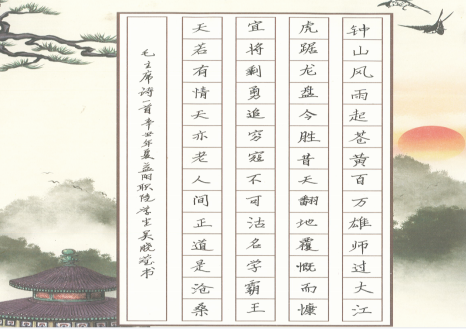 钟山风雨起苍黄百万雄师过大江
虎踞龙盘今胜昔天翻地覆慨而慷
宜将剩勇追穷寇不可沽名学霸王
天若有情天亦老人间正道是沧桑
毛主席诗一首辛丑年夏益阳职院学生吴晓莹书